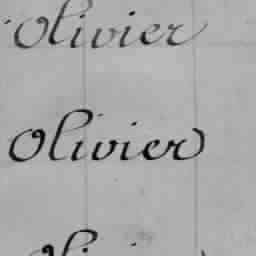 Olivier
Olivier